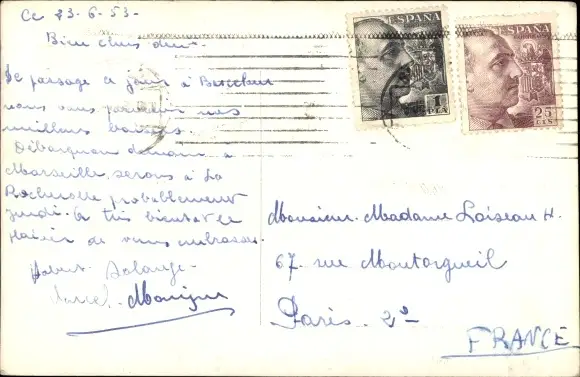 Ce 23-6-53-
Bien chers
De passage ce jour à Barcelone
vous nos
meilleurs baisers
Débarquons demain à
Marseille serons à La
Rochelle probablement
jeudi. A très bientôt le
plaisir de vous embrasser.
Solange
Marcel. Monique
ESPAÑA
1
PTA
ESPAÑA
25
CTS
Monsieur. Madame Loiseau H.
67. rue Montorgueil
Paris. 2e
FRANCE